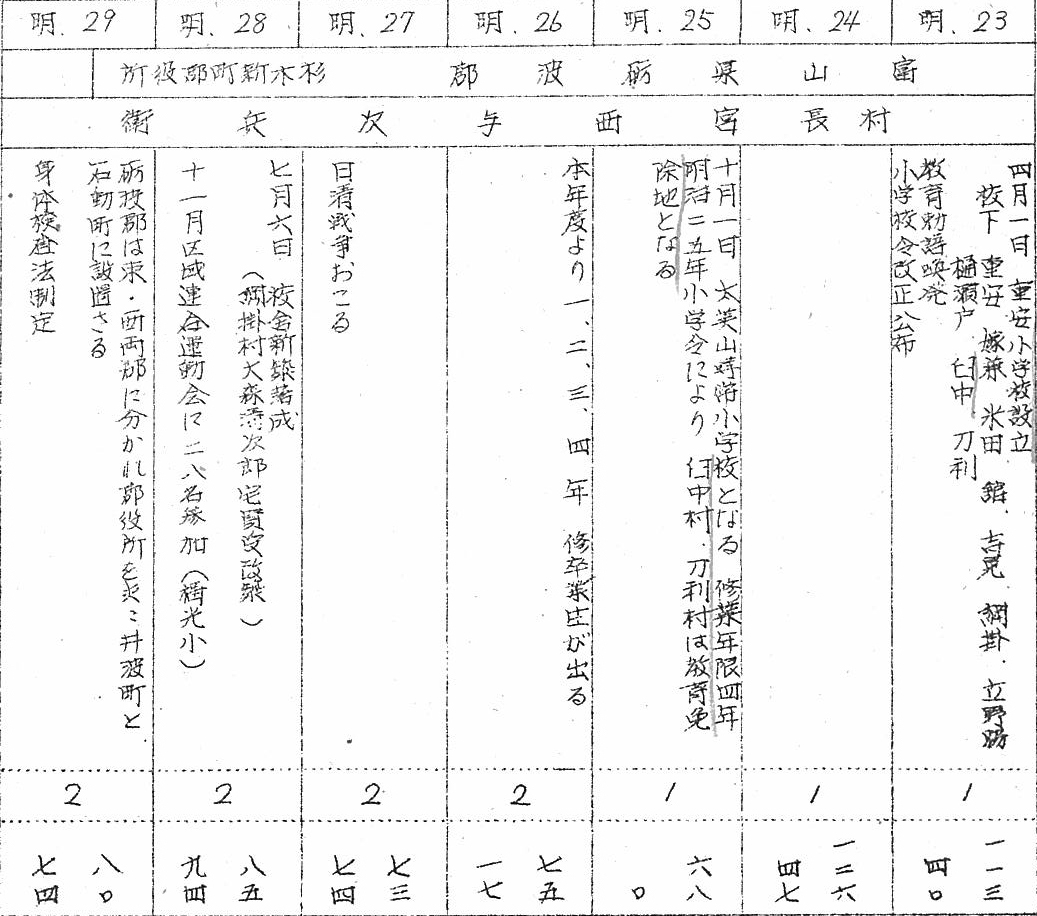 明.23
明.24
明.25
明.26
明.27
明.28
明.29
富山県砺波郡 杉木新町郡役所
村長 宮西与次兵衛
四月一日 重安小学校設立
校下 重安 嫁兼 米田 舘 吉見 綱掛 立野脇
樋瀬戸 臼中 刀利
教育勅語喚発
小学校令改正公布
十月一日 太美山尋常小学校となる 修業年限四年
明治二五年小学令により 臼中村.刀利村は教育免
除地となる
本年度より一、二、三、四年 修卒業生が出る
日清戦争おこる
七月六日 校舎新築落成
(綱掛村大森清次郎宅買受改築)
十一月区域連合運動会に二八名参加(福光小)
砺波郡は東・西両郡に分かれ郡役所を夫々井波町と
石動町に設置さる
身体検査法制定
1
1
1
2
2
2
2
一一三
四〇
一二六
四七
六八
〇
七五
一七
七三
七四
八五
九四
八〇
七四